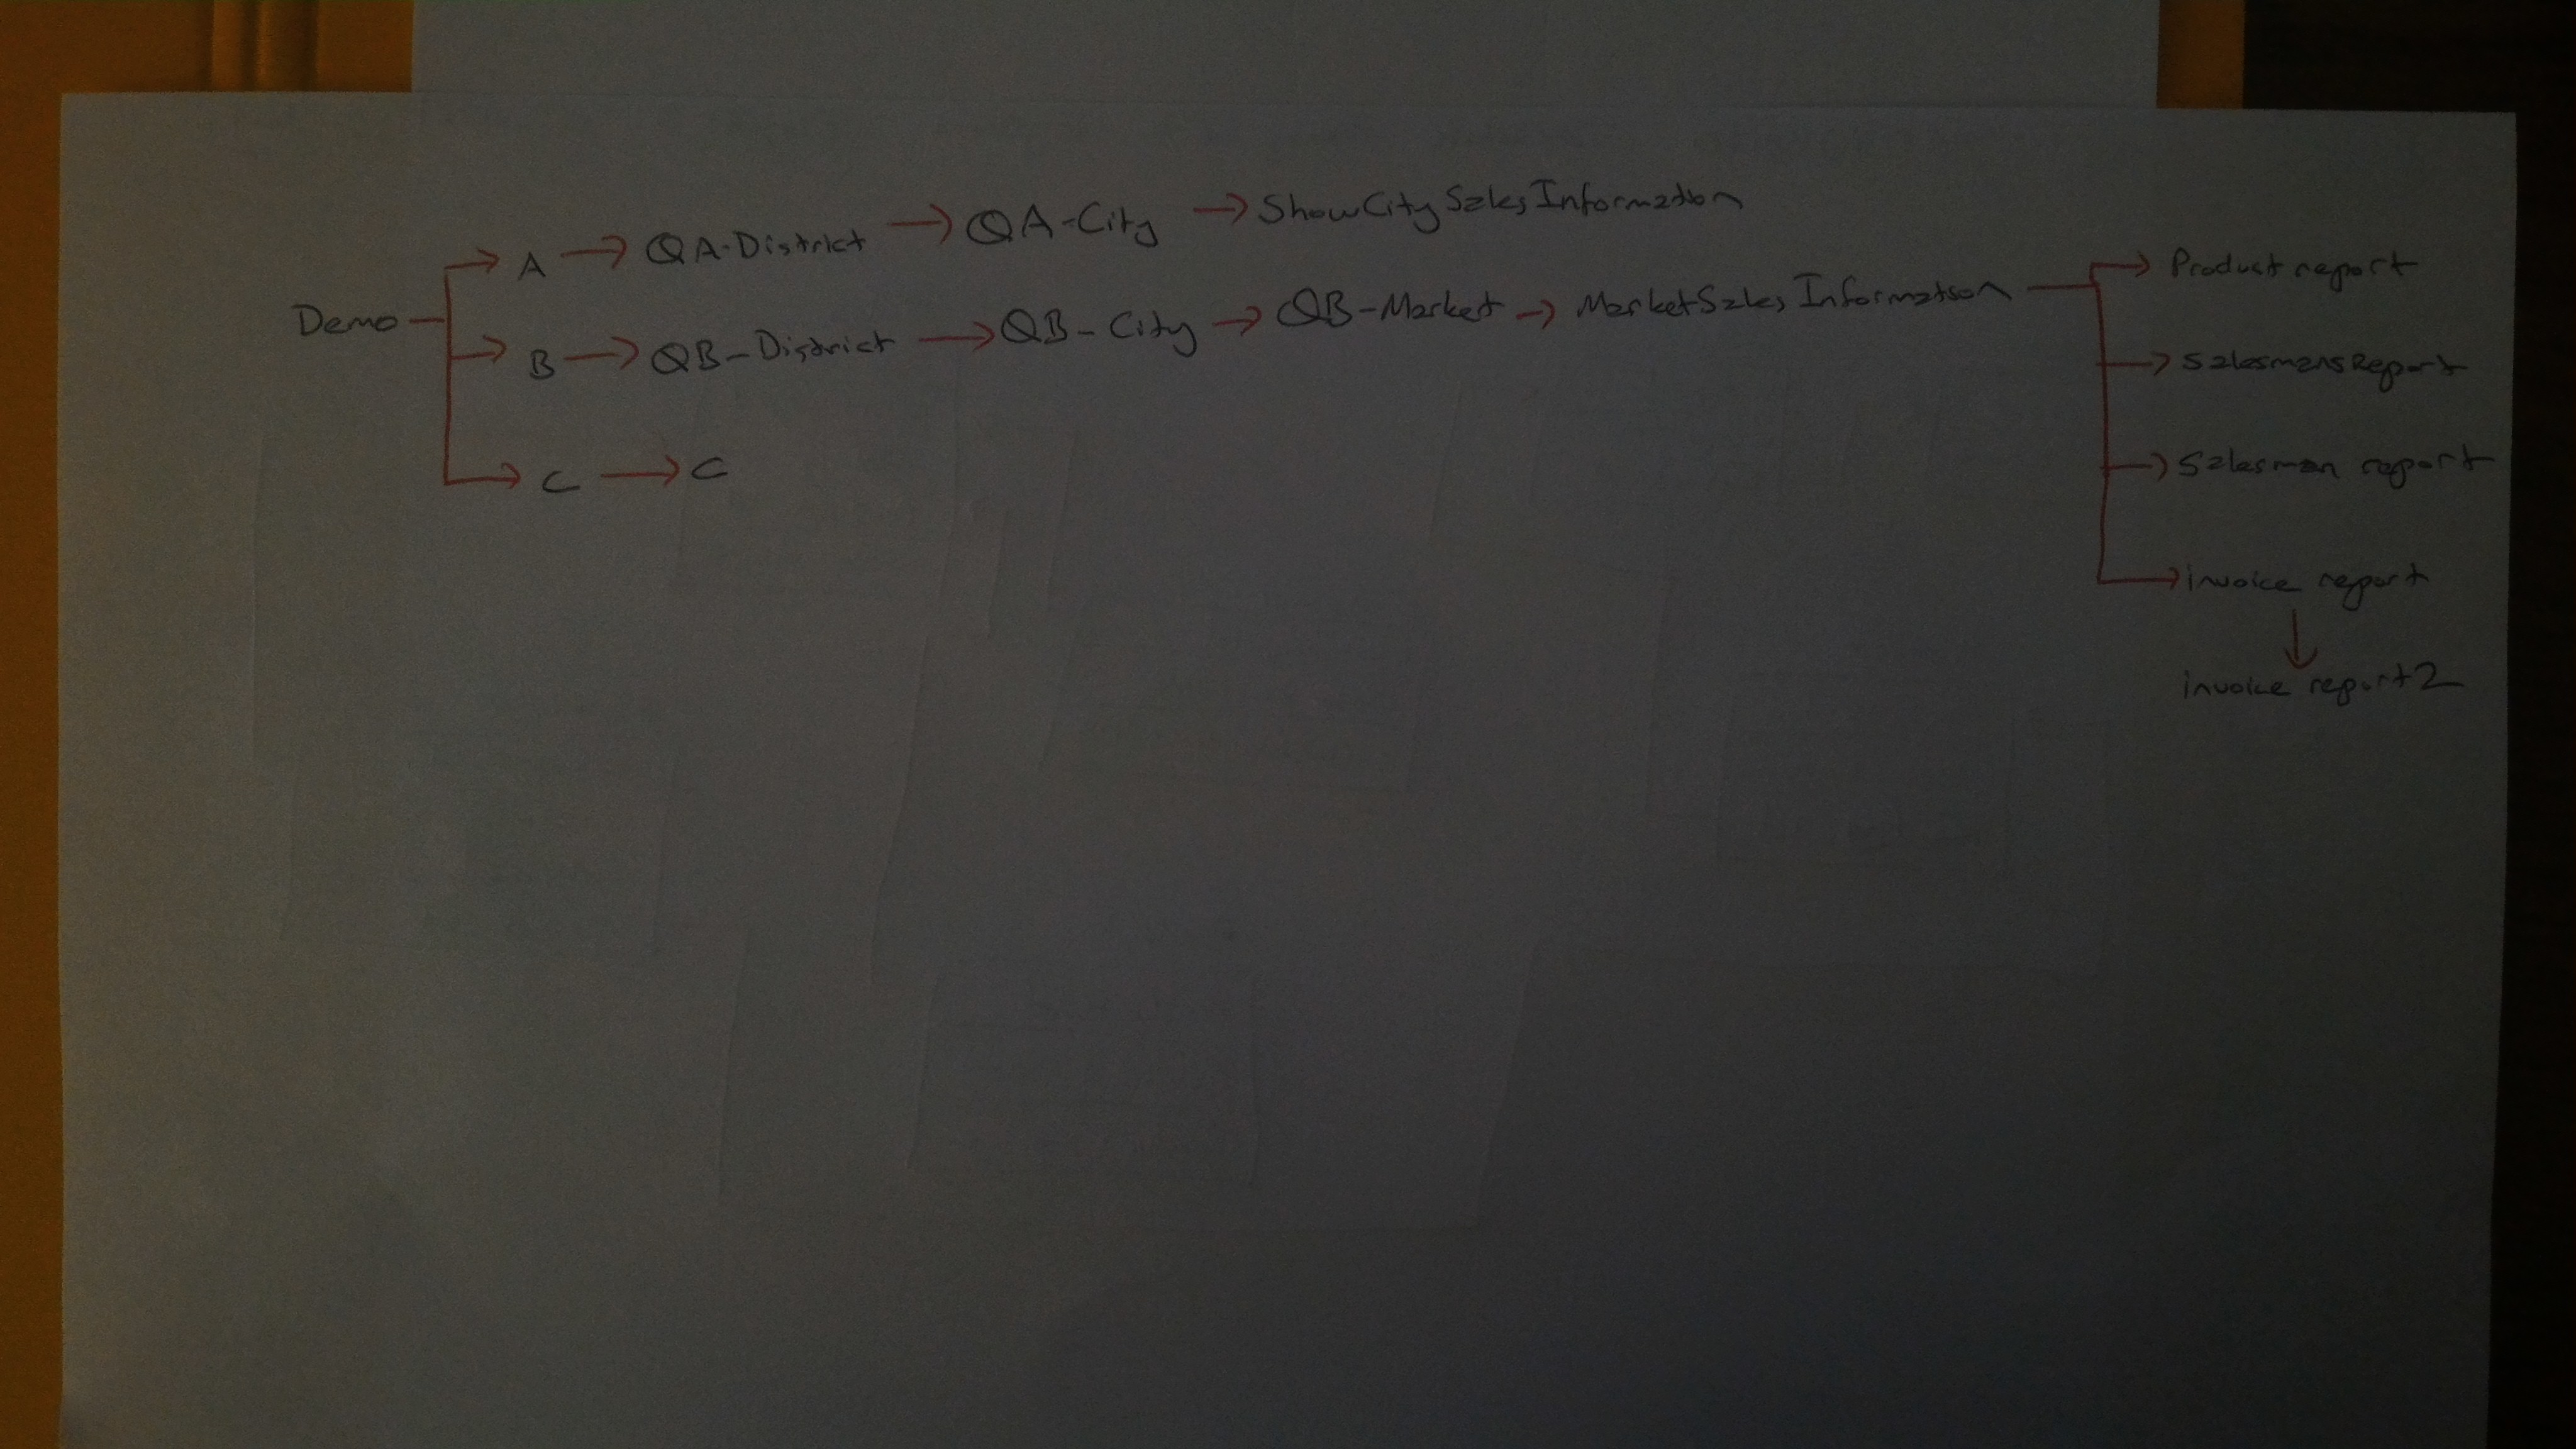 A → QA-District → QA-City → ShowCitySalesInformation
Demo
B → QB-District → QB-City → QB-Market → MarketSalesInformation
C → C
Product report
salesmansReport
Salesman report
invoice report
↓
invoice report2